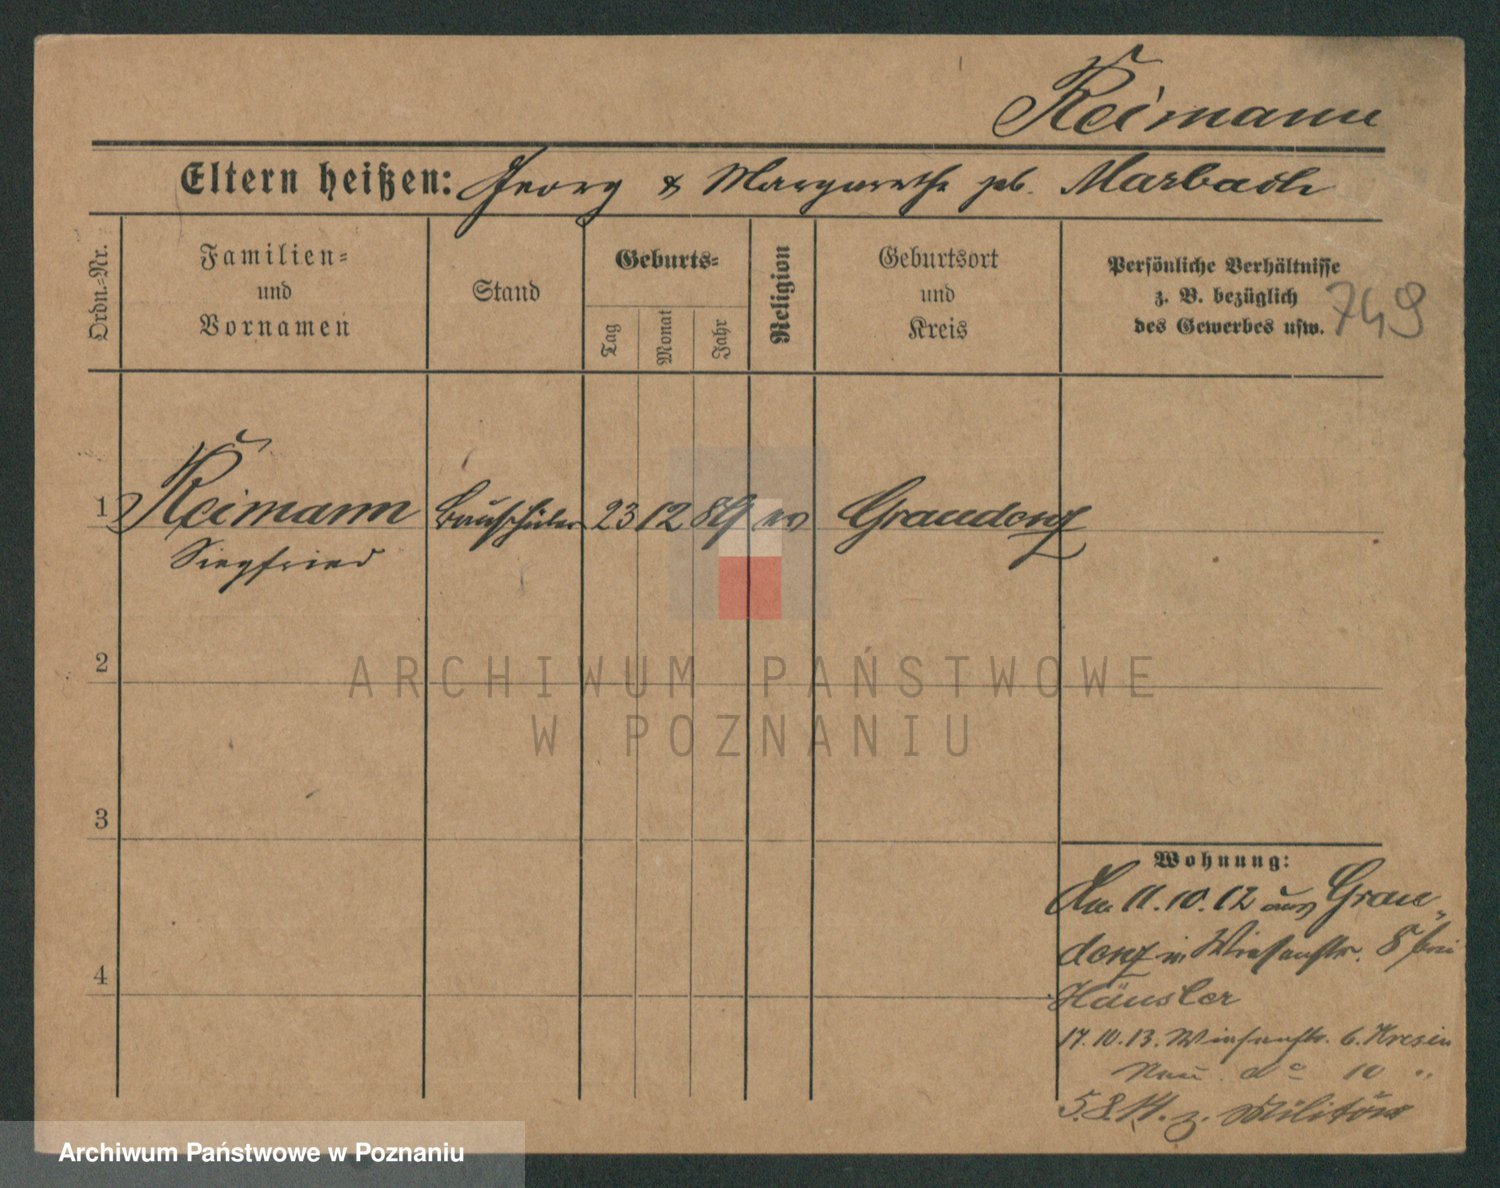 Reimann
Eltern heißen: Georg & Margarethe geb. Marbach
Ordn.-Nr.
Familien- und Vornamen
Stand
Geburts-
Tag
Monat
Jahr
Religion
Geburtsort und Kreis
Persönliche Verhältnisse
z. B. bezüglich
des Gewerbes usw.
749
1 Reimann Bauschüler 23 12 89 ev Graudenz
Siegfried
2
ARCHIWUM PAŃSTWOWE
W POZNANIU
3
Wohnung:
Am 11.10.12 aus Grau-
denz n. Wiesenstr. 8 bei
4
Häusler
17.10.13. Wiesenstr. 6. Kresin
do 10 "
5.8.14. z. Militär
Archiwum Państwowe w Poznaniu